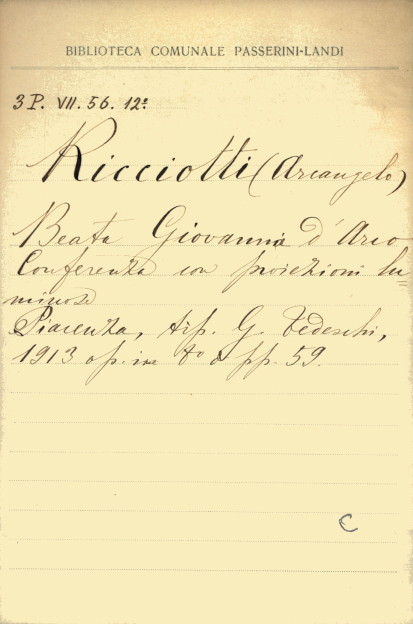 BIBLIOTECA COMUNALE PASSERINI-LANDI
3 P. VII. 56. 12º
Ricciotti (Arcangelo)
Beata Giovanna d'Arco
Conferenza con proiezioni lu=
minose
Piacenza, tip. G. Tedeschi,
1913 op. in 8º pp. 59.
C